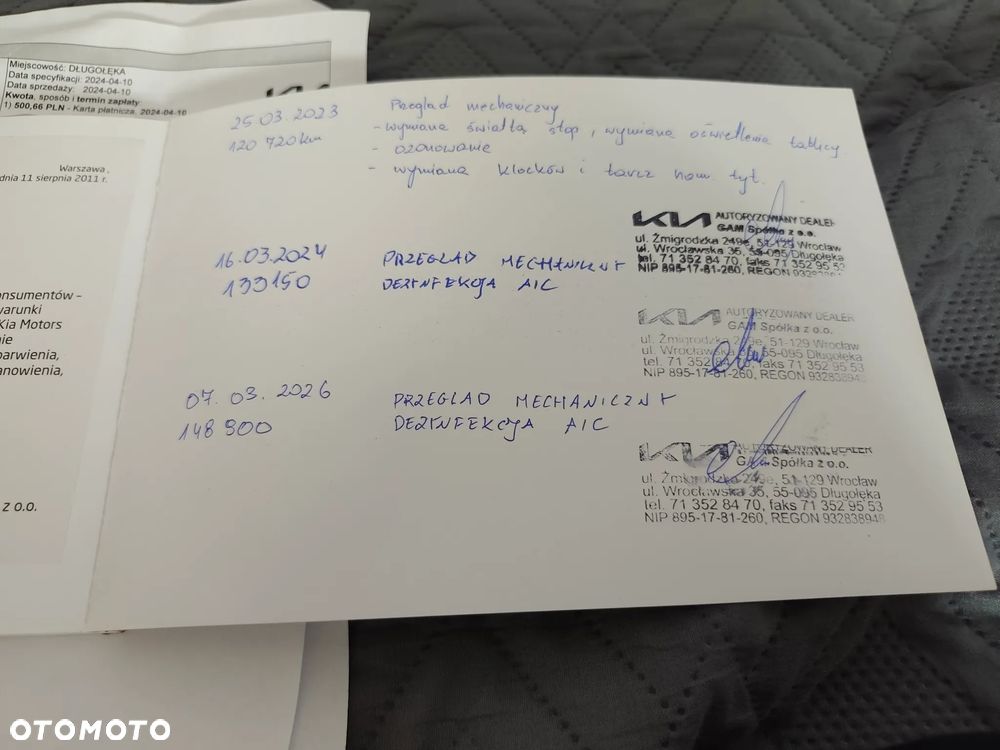 Miejscowość: DŁUGOŁĘKA
Data specyfikacji: 2024-04-10
Data sprzedaży: 2024-04-10
Kwota, sposób i termin zapłaty:
1) 500,66 PLN - Karta płatnicza, 2024-04-10
Warszawa,
dnia 11 sierpnia 2011 r.
onsumentów –
warunki
Kia Motors
nie
barwienia,
tanowienia,
z o.o.
25.03.2023 Przegląd mechaniczny
120 720km - wymiana światła stop, wymiana oświetlenia tablicy
- ozonowanie
- wymiana klocków i tarcz ham. tył.
KIA AUTORYZOWANY DEALER
GAM Spółka z o.o.
ul. Żmigrodzka 249e, 51-129 Wrocław
ul. Wrocławska 35, 55-095 Długołęka
tel. 71 352 84 70, faks 71 352 95 53
NIP 895-17-81-260, REGON
16.03.2024 PRZEGLĄD MECHANICZNY
133150 DEZYNFEKCJA A/C
KIA AUTORYZOWANY DEALER
GAM Spółka z o.o.
ul. Żmigrodzka 249e, 51-129 Wrocław
ul. Wrocławska 35, 55-095 Długołęka
tel. 71 352 84 70, faks 71 352 95 53
NIP 895-17-81-260, REGON 932838948
07.03.2026 PRZEGLĄD MECHANICZNY
148 900 DEZYNFEKCJA A/C
KIA AUTORYZOWANY DEALER
GAM Spółka z o.o.
ul. Żmigrodzka 249e, 51-129 Wrocław
ul. Wrocławska 35, 55-095 Długołęka
tel. 71 352 84 70, faks 71 352 95 53
NIP 895-17-81-260, REGON 932838948
OTOMOTO